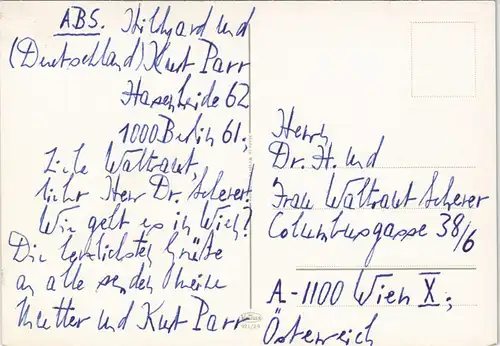 ABS. Hildgard und
(Deutschland) Kurt Parr
Hasenheide 62
1000 Berlin 61.
Liebe Waltraut,
lieber Herr Dr. Scherer!
Wie geht es in Wien?
Die herzlichsten Grüße
an alle senden Meine
Mutter und Kurt Parr
Herrn
Dr. H. und
Frau Waltraut Scherer
Columbusgasse 38/6
A-1100 Wien X;
Österreich